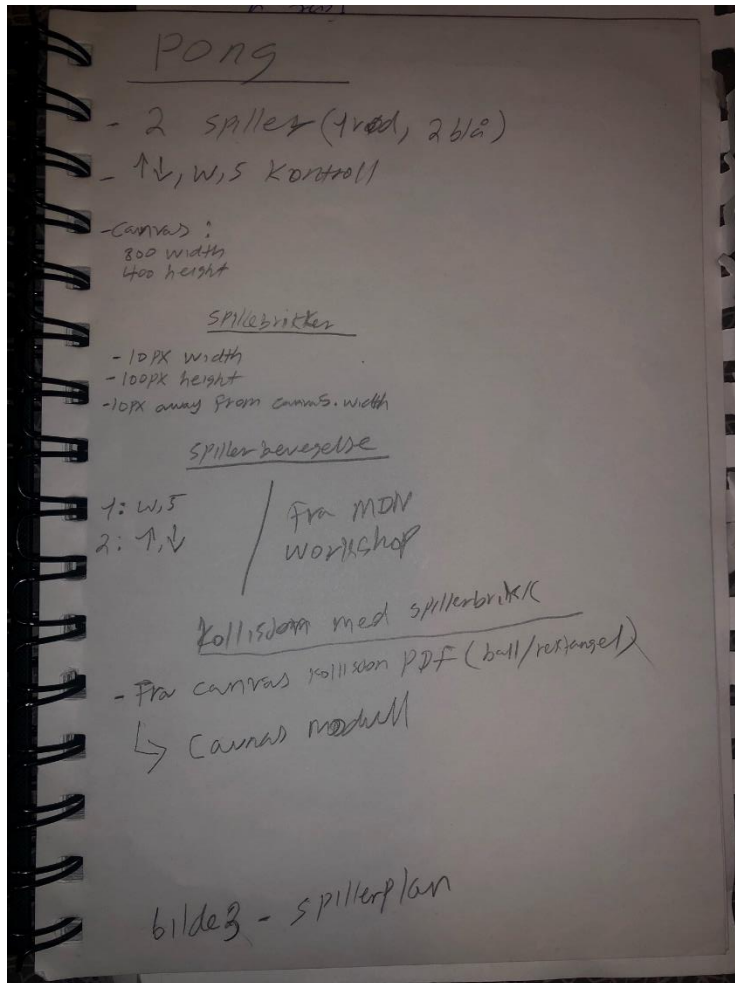 Pong
- 2 spiller (1 rød, 2 blå)
- ↑↓, W, S kontroll
- Canvas :
800 width
400 height
Spillebrikker
- 10px width
- 100px height
- 10px away from canvas.width
Spillerbevegelse
1: W, S
2: ↑, ↓
Fra MDN
workshop
Kollisjon med spillerbrikk
- Fra canvas kollisjon PDF (ball/rektangel)
↳ Canvas modul
bilde 3 - spillerplan